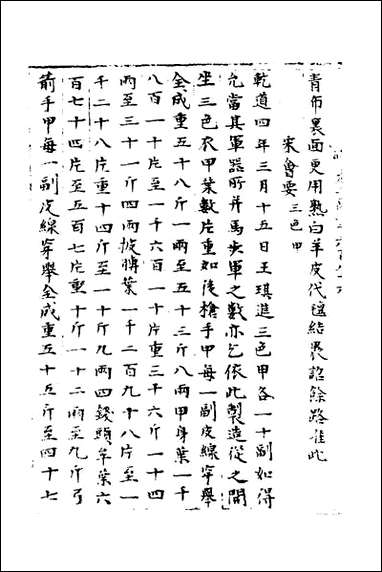 青布裏面更用熟白羊皮代氊結裹詔餘路准此
宋會要三色甲
乾道四年三月十五日王琪進三色甲各一十副如得
允當其軍器所并馬步軍之數亦乞依此製造從之間
坐三色衣甲葉數片重如後槍手甲每一副皮線穿舉
全成重五十八斤一兩至五十三斤八兩甲身葉一千
八百一十片至一千六百一十片重三千六斤一十四
兩至三十一斤四兩披膊葉一千二百九十八片至一
千二十八片重十四斤至一十斤九兩四錢頭牟葉六
百七十四片至五百七片重一十斤一十二兩至九斤弓
箭手甲每一副皮線穿舉全成重五十五斤至四十七